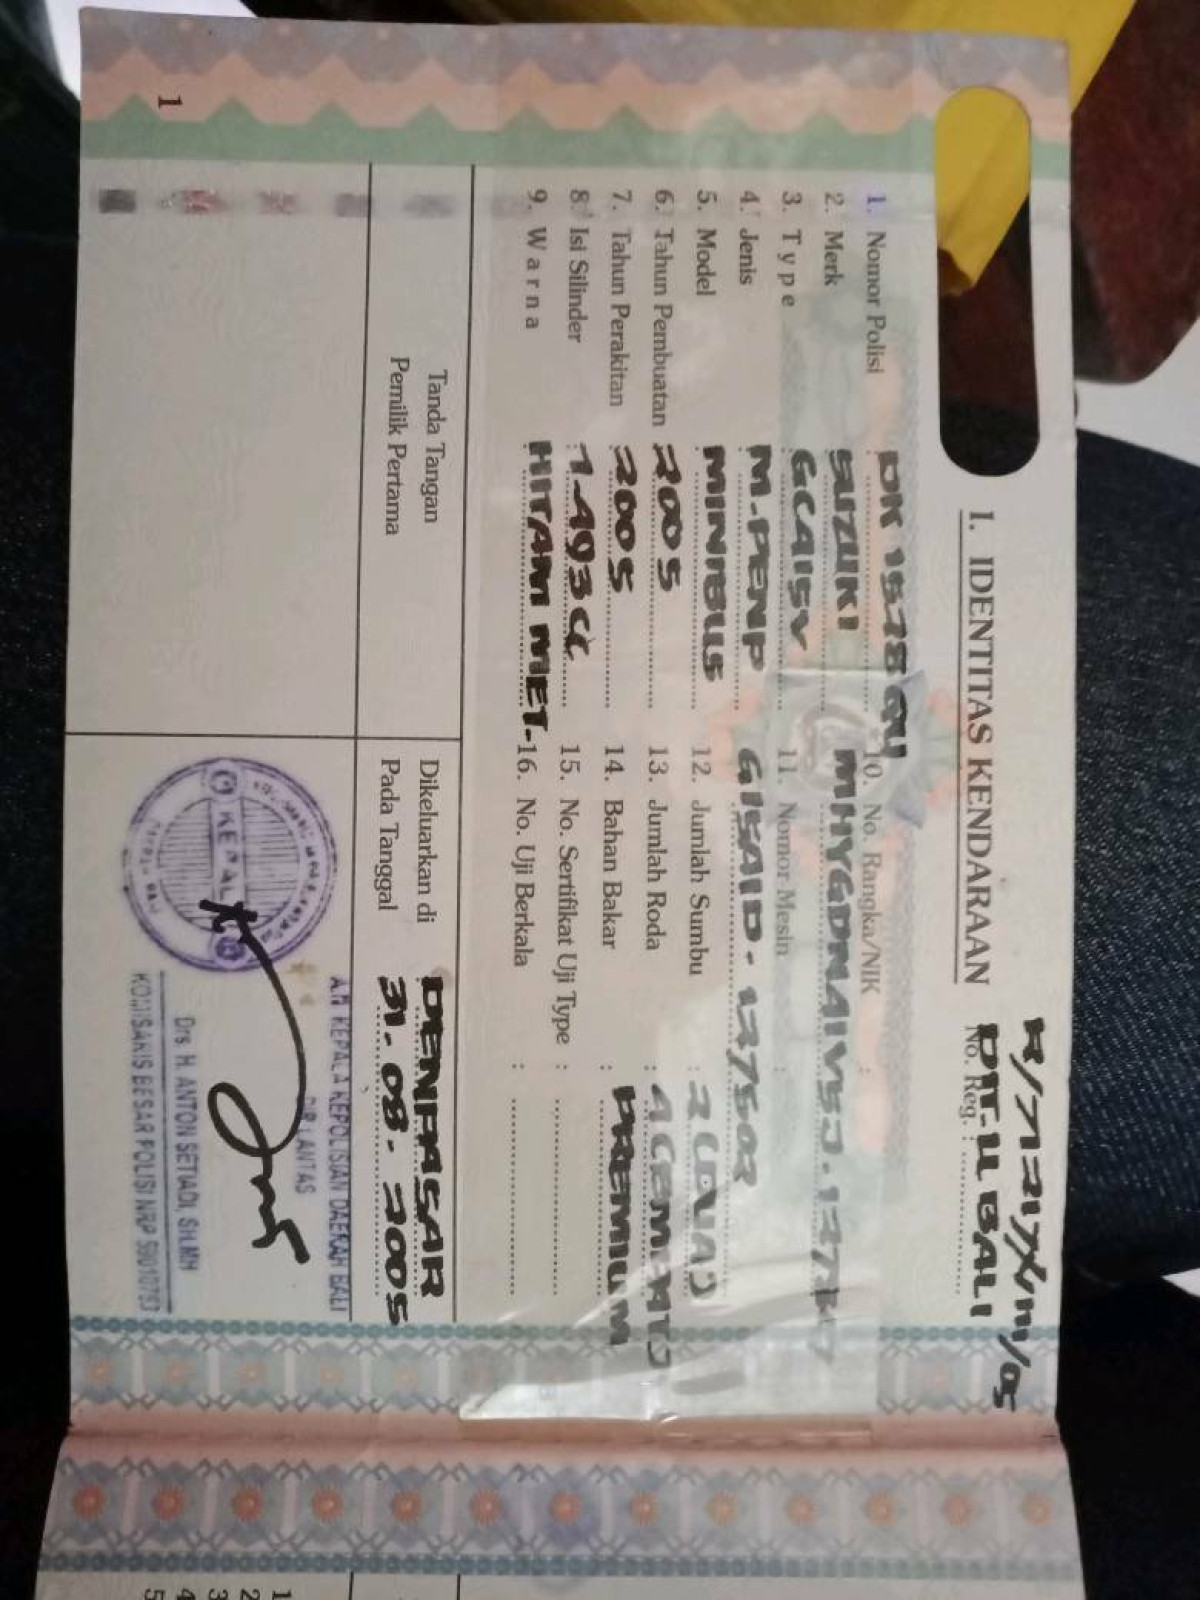 I. IDENTITAS KENDARAAN
No. Reg. : DIT-LL BALI
1. Nomor Polisi :
2. Merk : SUZUKI
3. Type : GCA15V
4. Jenis : M.PENP
5. Model : MINIBUS
6. Tahun Pembuatan : 2005
7. Tahun Perakitan : 2005
8. Isi Silinder : 1.493 CC
9. Warna : HITAM MET-
10. No. Rangka/NIK :
11. Nomor Mesin :
G15AID-127502
12. Jumlah Sumbu : 2 (DUA)
13. Jumlah Roda : 4
14. Bahan Bakar : PREMIUM
15. No. Sertifikat Uji Type :
16. No. Uji Berkala :
Tanda Tangan
Pemilik Pertama
Dikeluarkan di DENPASAR
Pada Tanggal 31-08-2005
AN KEPALA KEPOLISIAN DAERAH BALI
DIR LANTAS
KEPALA
Drs. H. ANTON SETIADI, SH.MH
KOMISARIS BESAR POLISI NRP 59010793
1
1
2
3
4
5